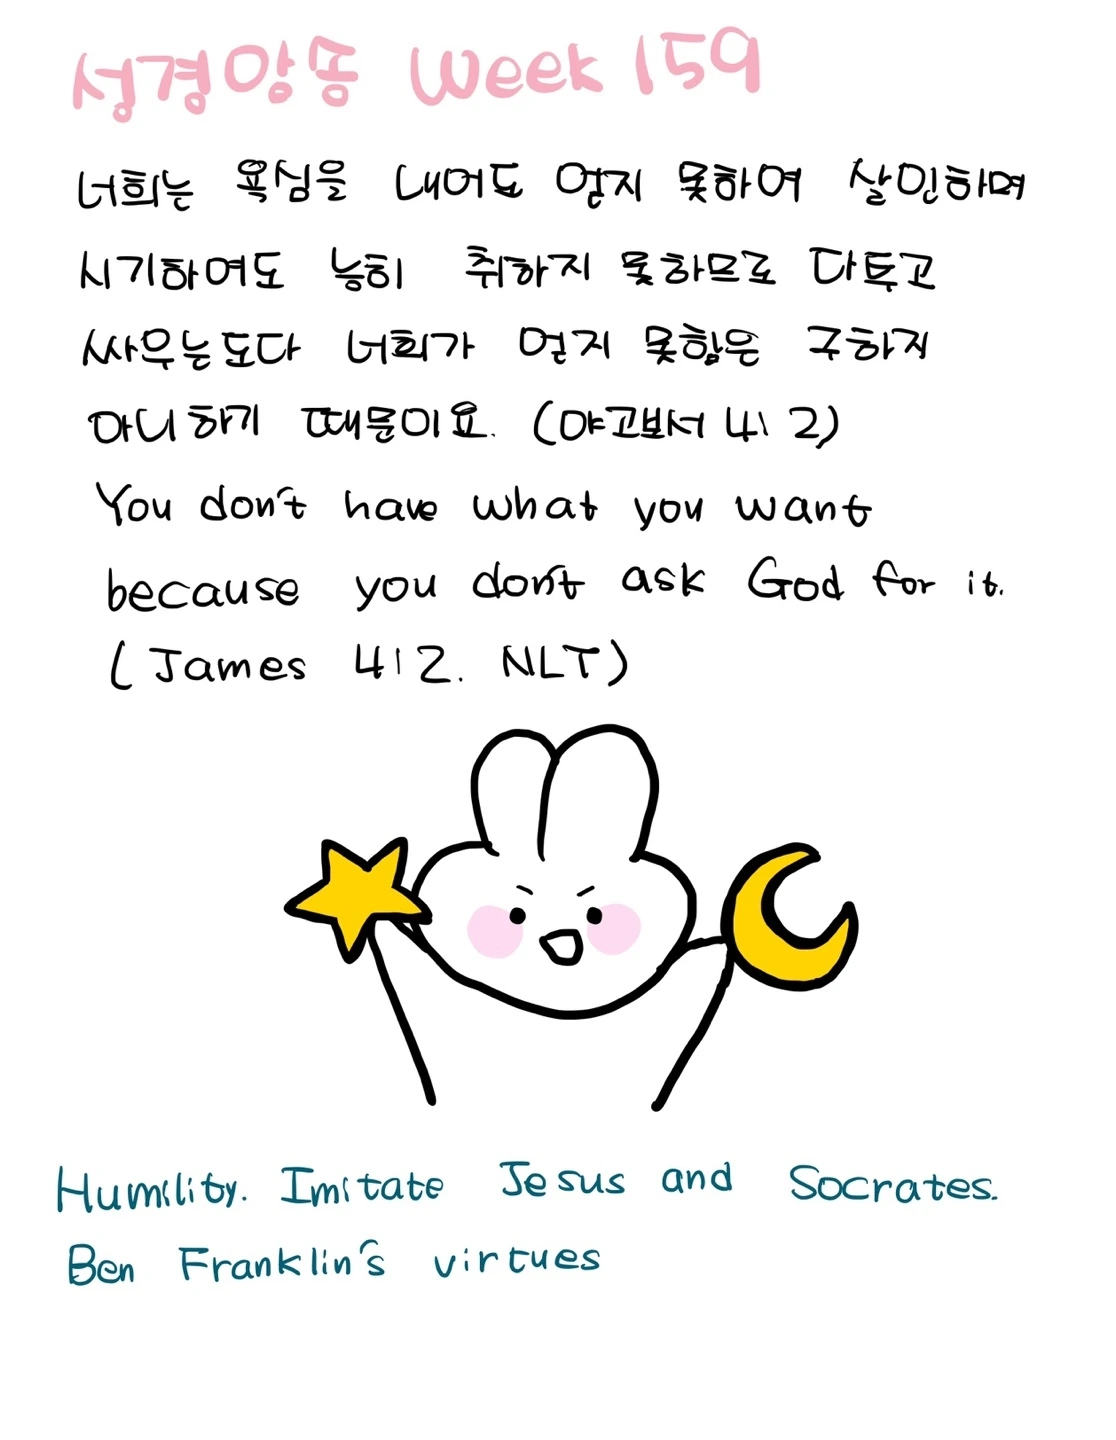 성경앙똥 Week 159
너희는 욕심을 내어도 얻지 못하여 살인하며
시기하여도 능히 취하지 못하므로 다투고
싸우는도다 너희가 얻지 못함은 구하지
아니하기 때문이요. (야고보서 4:2)
You don't have what you want
because you don't ask God for it.
(James 4:2. NLT)
Humility. Imitate Jesus and Socrates.
Ben Franklin's virtues